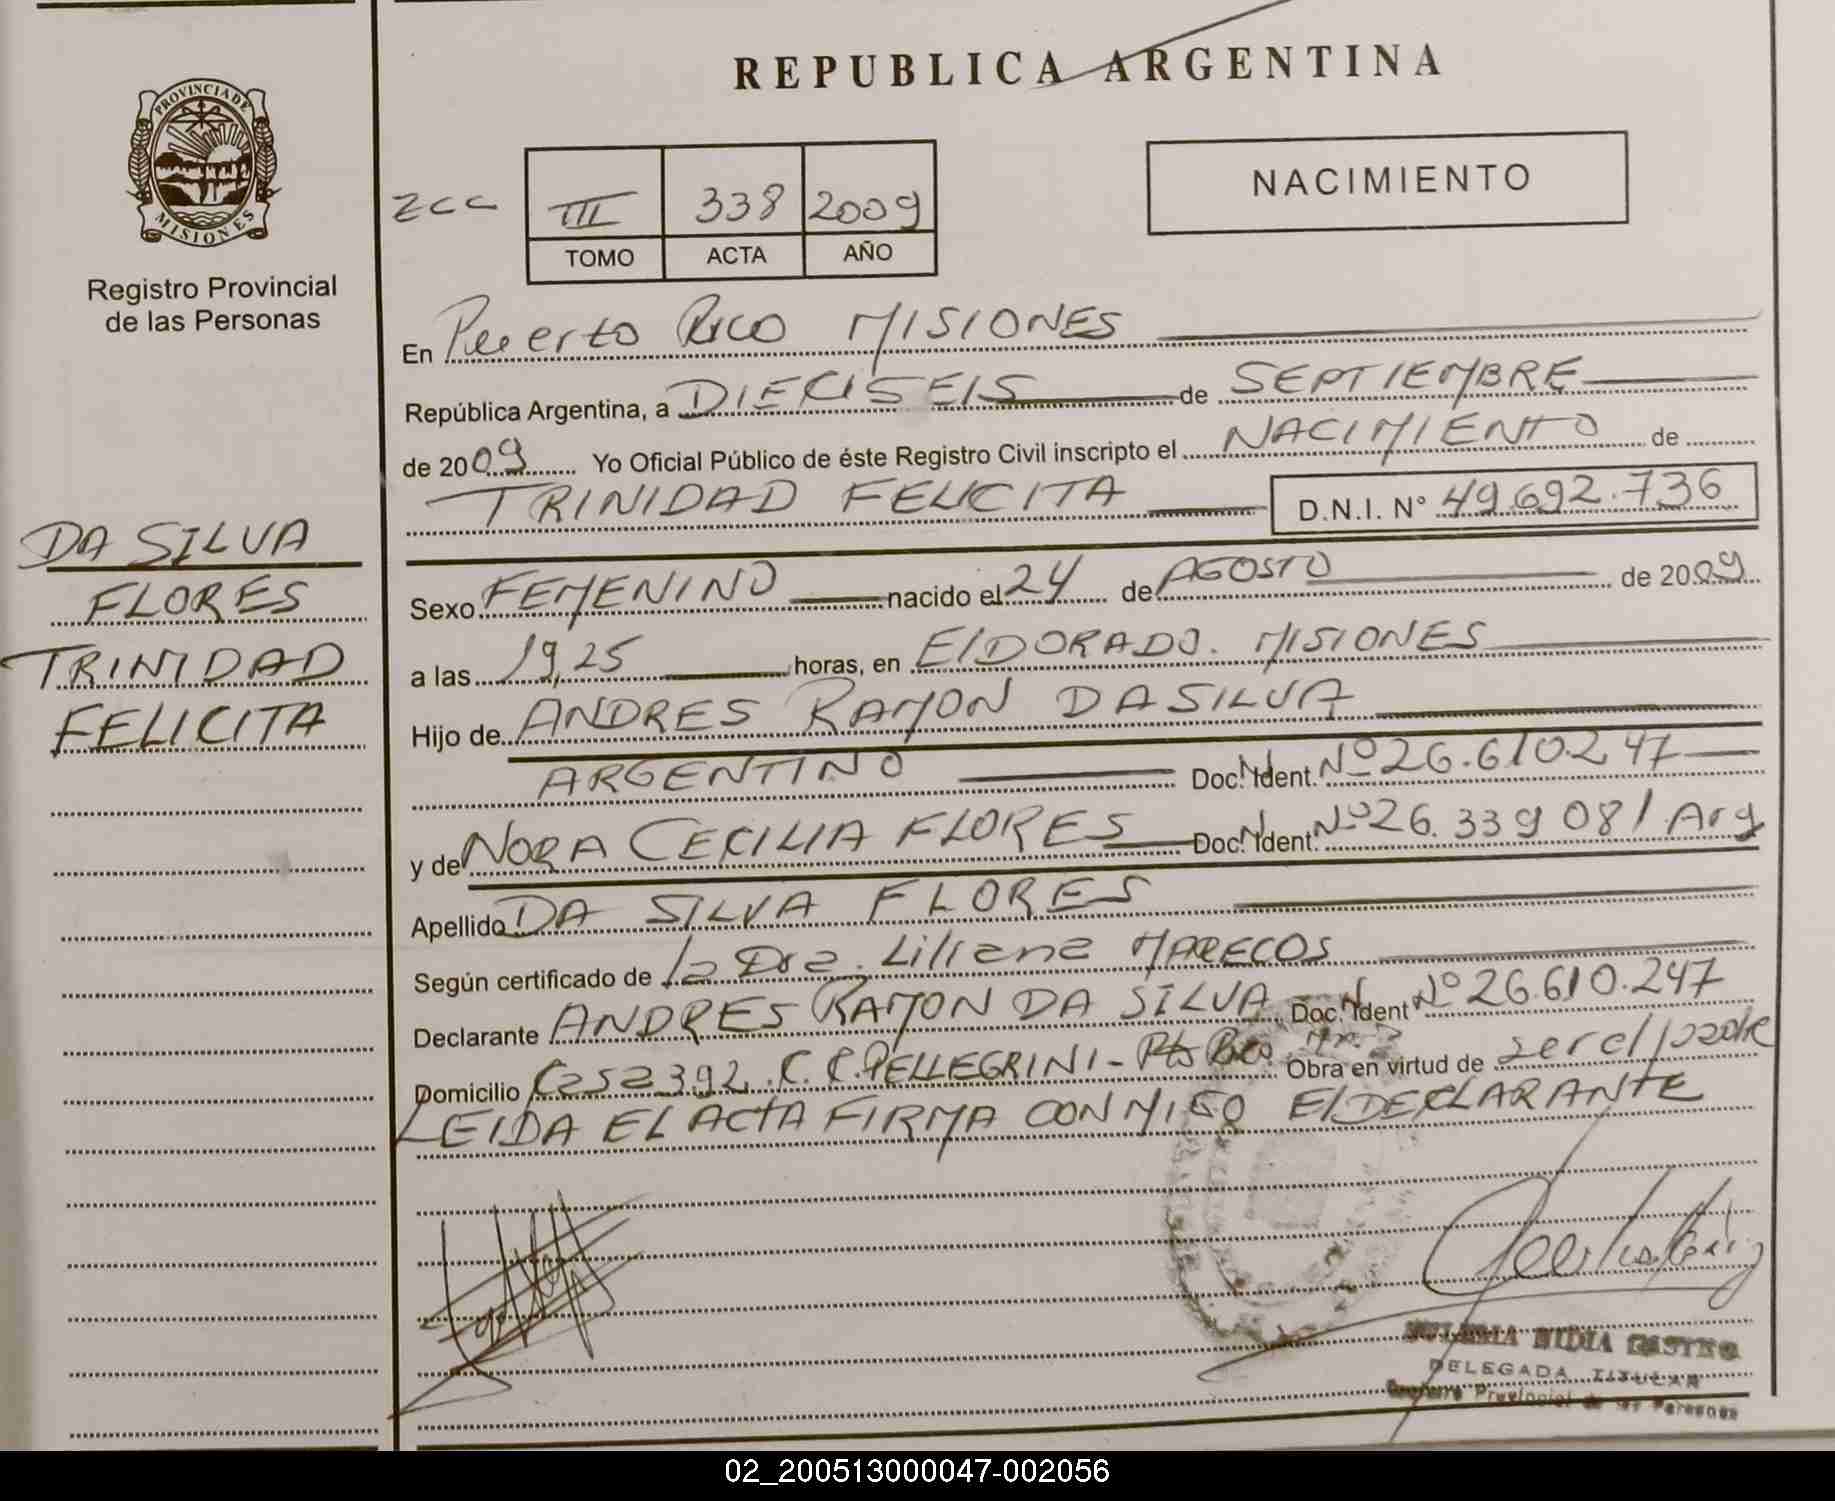 REPUBLICA ARGENTINA
PROVINCIA DE
MISIONES
Registro Provincial
de las Personas
zcc
III 338 2009
TOMO ACTA AÑO
NACIMIENTO
En Puerto Rico MISIONES
República Argentina, a DIECISEIS de SEPTIEMBRE
de 2009 Yo Oficial Público de éste Registro Civil inscripto el NACIMIENTO de
TRINIDAD FELICITA D.N.I. N° 49.692.736
DA SILVA
FLORES
TRINIDAD
FELICITA
Sexo FEMENINO nacido el 24 de AGOSTO de 2009
a las 19,25 horas, en ElDORADO. MISIONES
Hijo de ANDRES RAMON DA SILVA
ARGENTINO Doc. N. Ident. Nº 26.610.247
y de NORA CECILIA FLORES Doc. N. Ident. Nº 26.339 081 Arg
Apellido DA SILVA FLORES
Según certificado de la Dra. Liliana MARECOS
Declarante ANDRES RAMON DA SILVA Doc. N. Ident Nº 26.610.247
Domicilio Casa 392. C. C. PELLEGRINI - Pto Rico Obra en virtud de ser el padre
LEIDA EL ACTA FIRMA CONMIGO El DECLARANTE
NIDIA CASTRO
DELEGADA TITULAR
Registro Provincial de las Personas
02_200513000047-002056